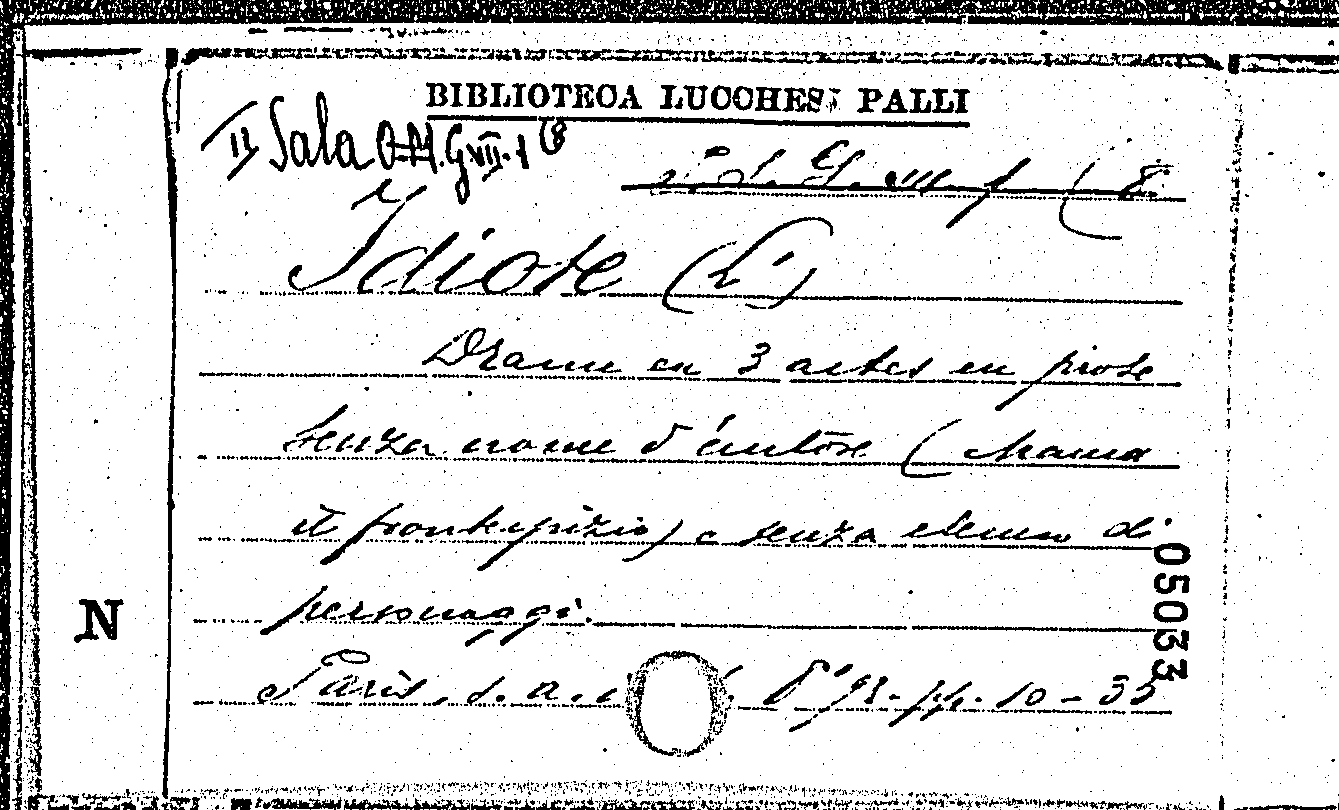 BIBLIOTECA LUCCHESI PALLI
II Sala O.M. G VII. 1 (8
Idiote (L')
Drame en 3 actes en prose
senza nome d'autore (manca
il frontespizio) e senza elenco di
personaggi.
Paris, s. a. 8° pp. 10-35
05033
N